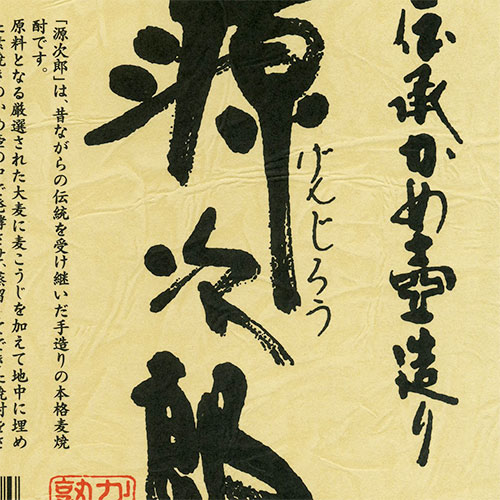 伝承かめ壷造り
源次郎
げんじろう
「源次郎」は、昔ながらの伝統を受け継いだ手造りの本格麦焼
酎です。
原料となる厳選された大麦に麦こうじを加えて地中に埋め